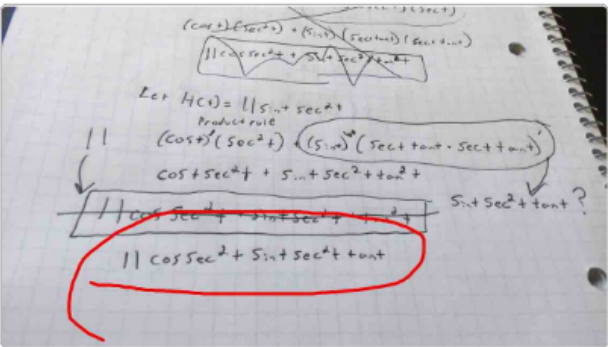 (sect)
(cost)(sec²t) + (sint)(sectant)(secttant)
11cossec²t + sint sec²t tan²t
Let H(t) = 11 sint sec²t
Product rule
11 (cost)(sec²t) + (sint)(sect tant · sect tant)
cost sec²t + sint sec²t tan²t
11 cos sec²t + sint sec²t tan²t
sint sec²t tant?
11 cos sec²t sint sec²t tant